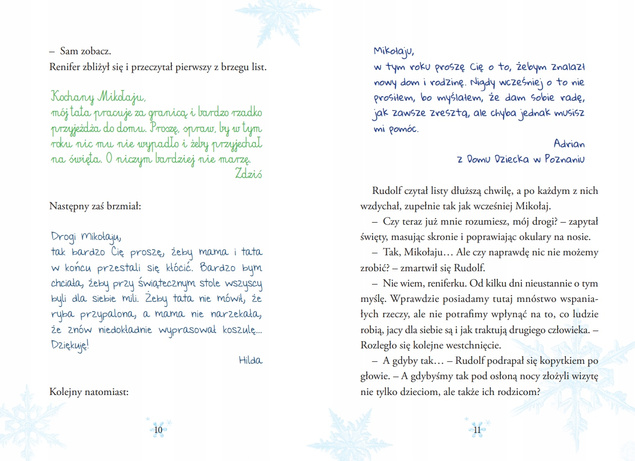 – Sam zobacz.
Renifer zbliżył się i przeczytał pierwszy z brzegu list.
Kochany Mikołaju,
mój tata pracuje za granicą i bardzo rzadko
przyjeżdża do domu. Proszę, spraw, by w tym
roku nic mu nie wypadło i żeby przyjechał
na święta. O niczym bardziej nie marzę.
Zdziś
Następny zaś brzmiał:
Drogi Mikołaju,
tak bardzo Cię proszę, żeby mama i tata
w końcu przestali się kłócić. Bardzo bym
chciała, żeby przy świątecznym stole wszyscy
byli dla siebie mili. Żeby tata nie mówił, że
ryba przypalona, a mama nie narzekała,
że znów niedokładnie wyprasował koszulę...
Dziękuję!
Hilda
Kolejny natomiast:
10
Mikołaju,
w tym roku proszę Cię o to, żebym znalazł
nowy dom i rodzinę. Nigdy wcześniej o to nie
prosiłem, bo myślałem, że dam sobie radę,
jak zawsze zresztą, ale chyba jednak musisz
mi pomóc.
Adrian
z Domu Dziecka w Poznaniu
Rudolf czytał listy dłuższą chwilę, a po każdym z nich
wzdychał, zupełnie tak jak wcześniej Mikołaj.
– Czy teraz już mnie rozumiesz, mój drogi? – zapytał
święty, masując skronie i poprawiając okulary na nosie.
– Tak, Mikołaju… Ale czy naprawdę nic nie możemy
zrobić? – zmartwił się Rudolf.
– Nie wiem, reniferku. Od kilku dni nieustannie o tym
myślę. Wprawdzie posiadamy tutaj mnóstwo wspania-
łych rzeczy, ale nie potrafimy wpłynąć na to, co ludzie
robią, jacy dla siebie są i jak traktują drugiego człowieka. –
Rozległo się kolejne westchnięcie.
– A gdyby tak… – Rudolf podrapał się kopytkiem po
głowie. – A gdybyśmy tak pod osłoną nocy złożyli wizytę
nie tylko dzieciom, ale także ich rodzicom?
11